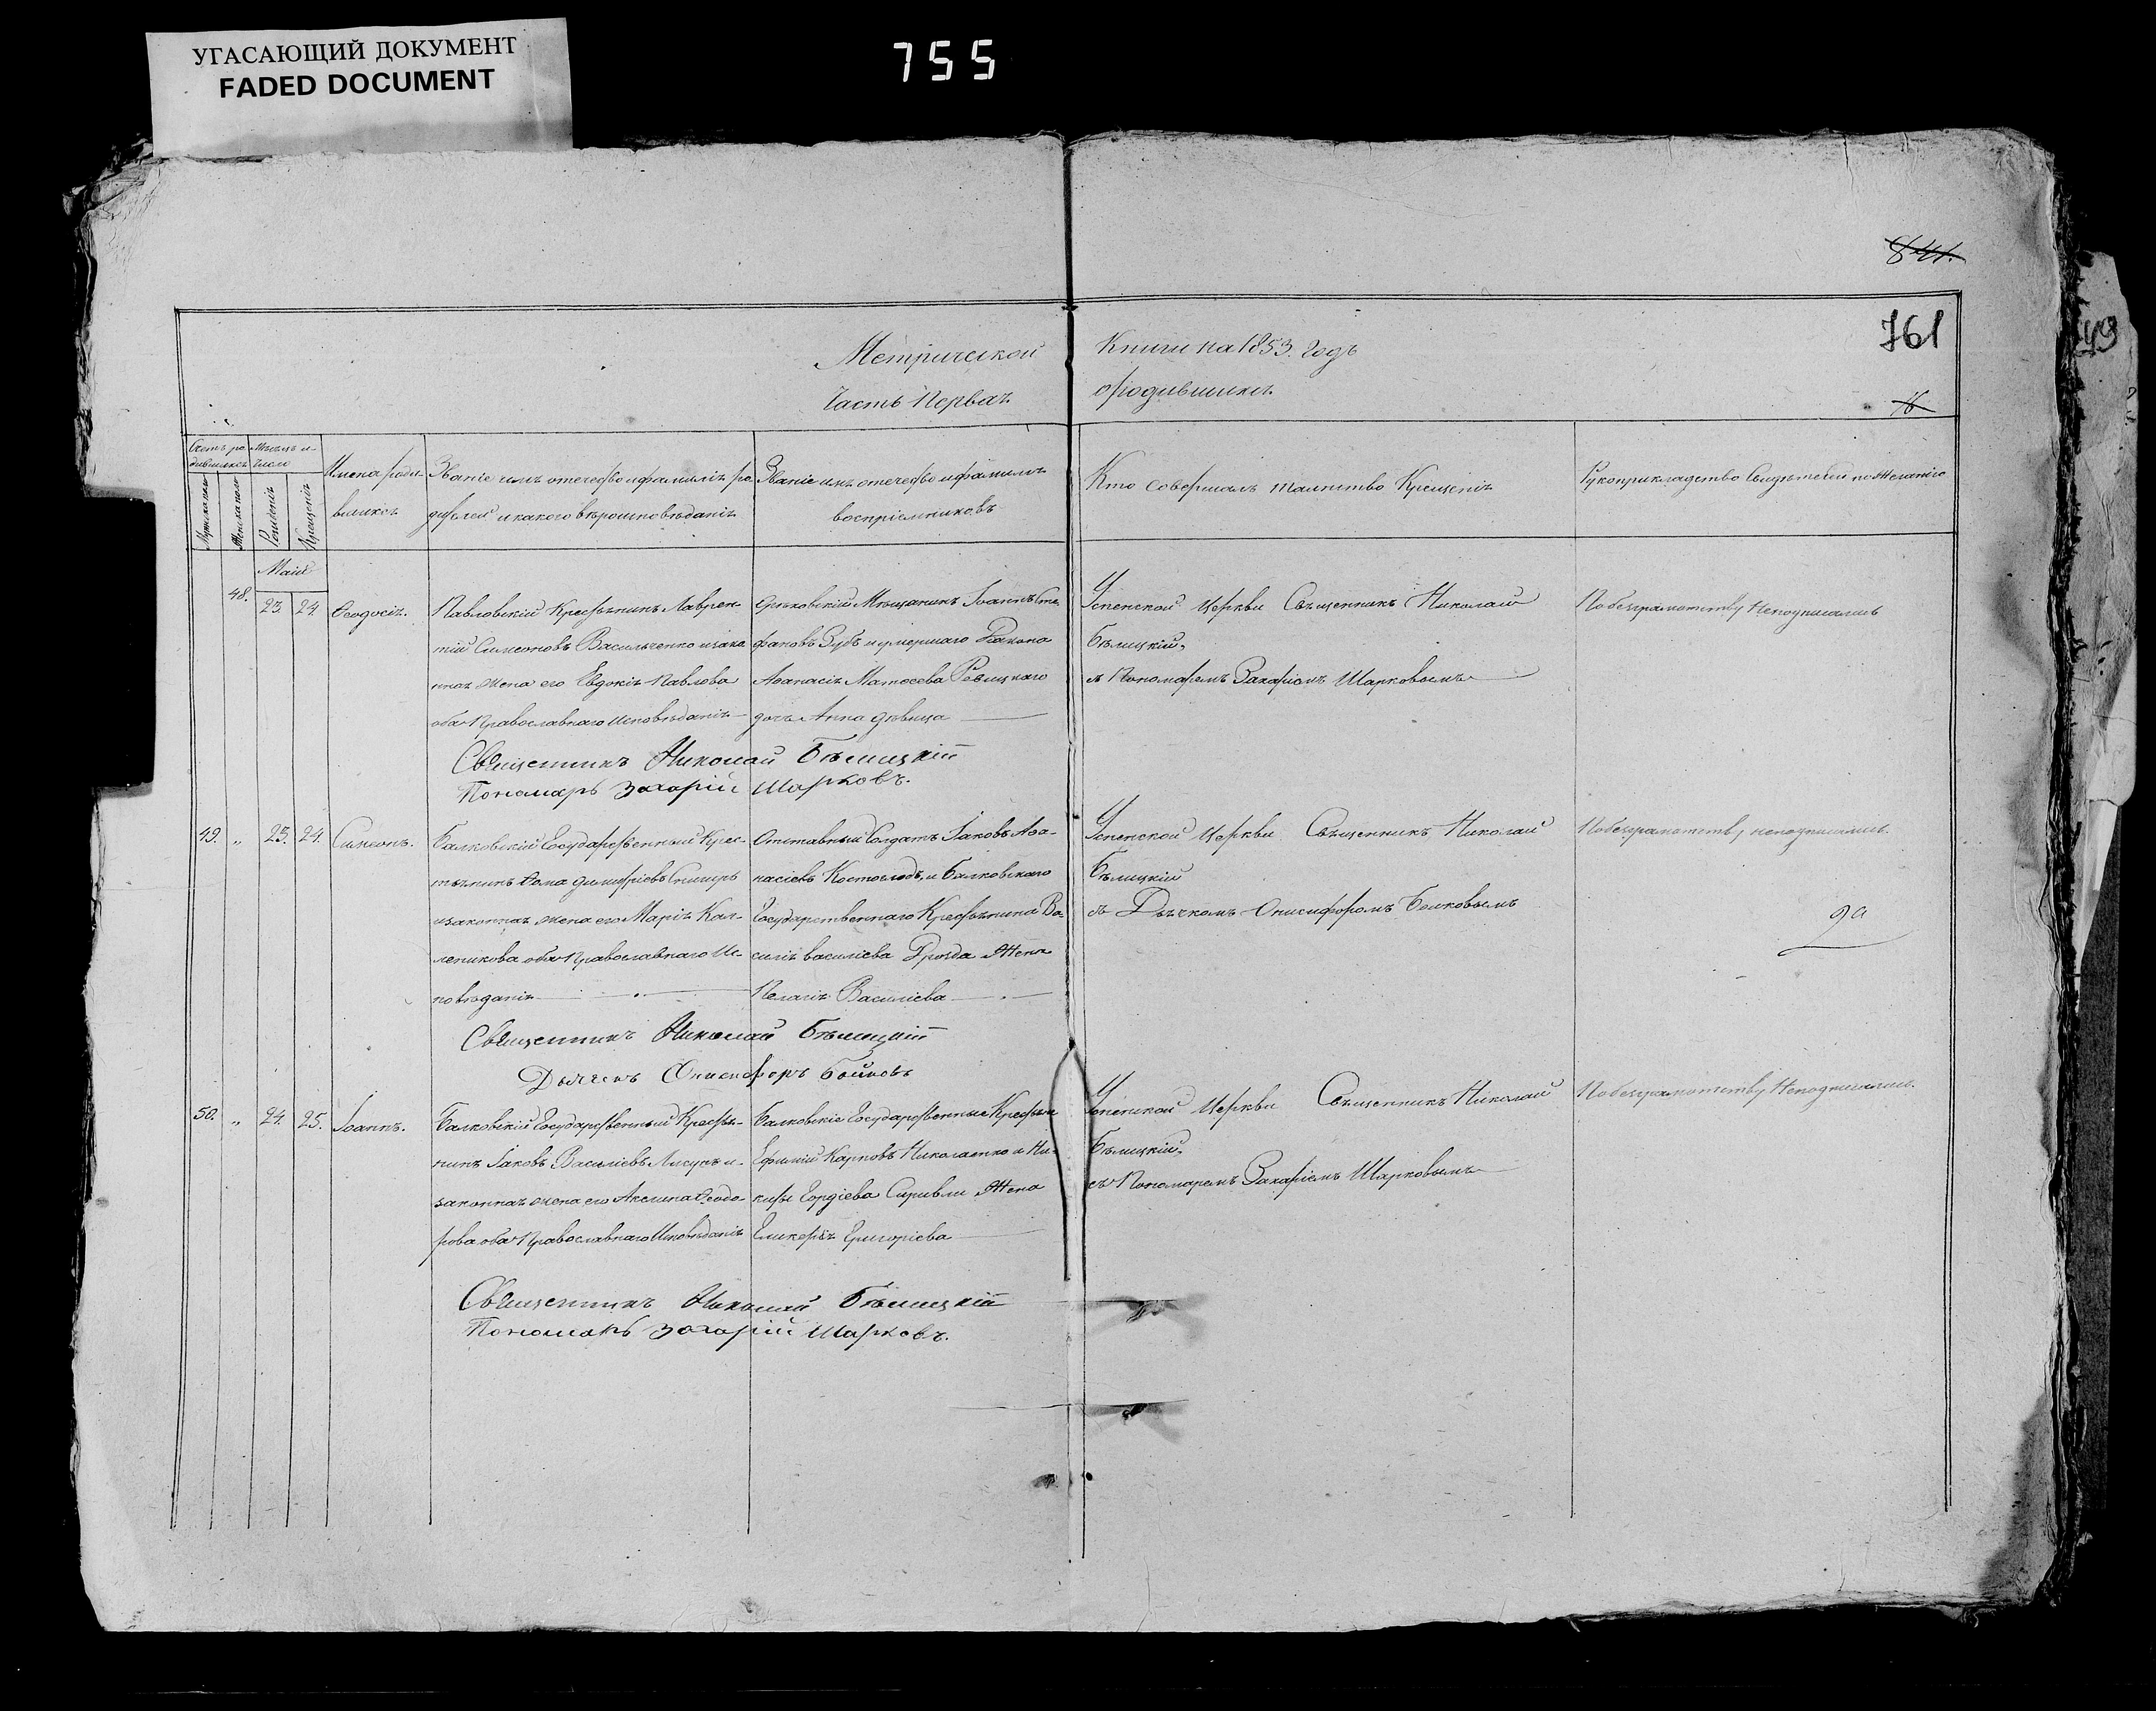 УГАСАЮЩИЙ ДОКУМЕНТ
FADED DOCUMENT
755
841.
761
49
Метрической Книги на 1853. Годъ
Часть Первая. о родившихся.
Счетъ ро-
дившихся
Мѣсяцъ и
число
Мужеска пола
Женска пола
Рожденія
Крещенія
Имена роди-
вшихся
Званіе имъ отечество и фамилія ро-
дителей и какого вѣроисповѣданія
Званіе имъ отечество и фамилія
воспріемниковъ
Кто совершалъ таинство Крещенія
Рукоприкладство Свидѣтелей по желанію
Маія
48.
23
24
Ѳеодосія.
Павловскій Крестьянинъ Лаврен-
тій Симеоновъ Васильченко и зако
нная жена его Евдокія Павлова
оба Православнаго исповѣданія
Орѣховскій Мѣщанинъ Іоаннъ Сте
фановъ Зубъ и умершаго Дьякона
Аѳанасія Матѳеева Ревицкаго
дочь Анна дѣвица
Успенской Церкви Священникъ Николай
Бѣлицкій,
съ Пономаремъ Захаріемъ Шарковымъ
По безграмотству Неподписались
Священникъ Николай Бѣлицкій
Пономарь Захарій Шарковъ.
49.
"
23.
24.
Симеонъ.
Балковскій Государственный Крес-
тьянинъ Ѳома Димитріевъ
и законная жена его Марія Кал-
леникова оба Православнаго Ис-
повѣданія
Отставный Солдатъ Іаковъ Аѳа-
насіевъ и Балковскаго
Государственнаго Крестьянина Ва-
силія Василіева Дрозда Жена
Пелагія Василіева
Успенской Церкви Священникъ Николай
Бѣлицкій
съ Дьячкомъ Онисифоромъ Бойковымъ
По безграмотству неподписались.
Священникъ Николай Бѣлицкій
Дьячекъ Онисифоръ Бойковъ
50.
"
24.
25.
Іоаннъ.
Балковскій Государственный Крестья-
нинъ Іаковъ Василіевъ Лисунъ и
законная жена его Акилина Ѳеодо-
рова оба Православнаго Исповѣданія
Балковскіе Государственные Крестьяне
Ефимій Карповъ Николаенко и Ни-
киты Гордіева Жена
Гликерія Григоріева
Успенской Церкви Священникъ Николай
Бѣлицкій,
съ Пономаремъ Захаріемъ Шарковымъ
По безграмотству Неподписались.
Священникъ Николай Бѣлицкій
Пономарь Захарій Шарковъ.